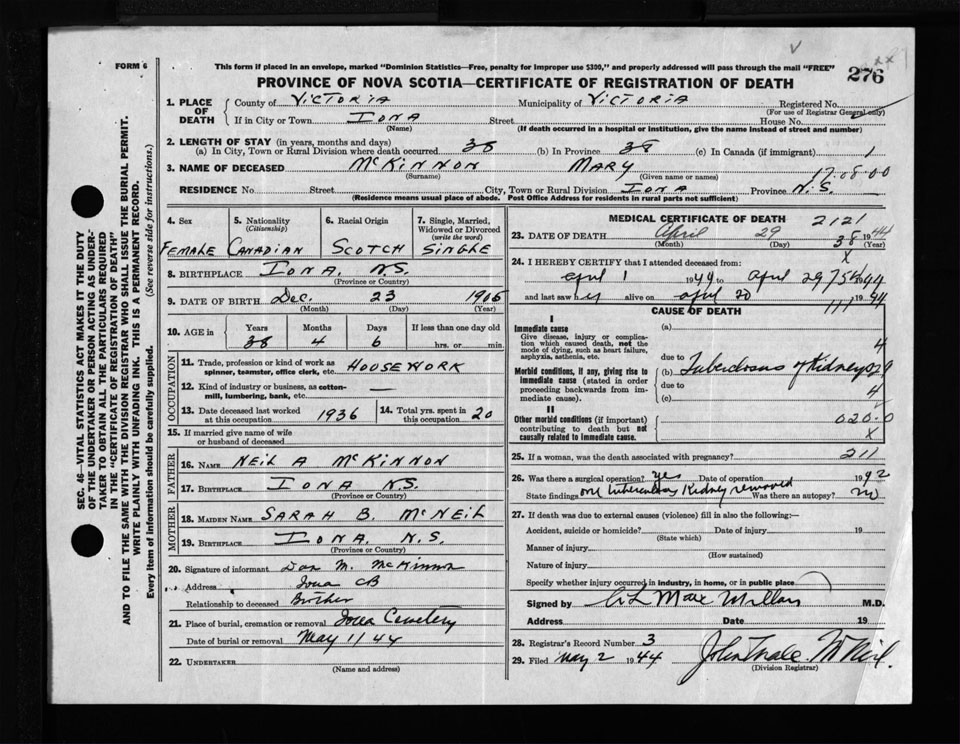 This form if placed in an envelope, marked "Dominion Statistics—Free, penalty for improper use $300," and properly addressed will pass through the mail "FREE"
FORM 6
276
PROVINCE OF NOVA SCOTIA—CERTIFICATE OF REGISTRATION OF DEATH
1. PLACE OF DEATH County of VICTORIA Municipality of VICTORIA Registered No.
(For use of Registrar General only)
If in City or Town IONA Street House No.
(Name) (If death occurred in a hospital or institution, give the name instead of street and number)
2. LENGTH OF STAY (in years, months and days)
(a) In City, Town or Rural Division where death occurred 38 (b) In Province 38 (c) In Canada (if immigrant) 1
3. NAME OF DECEASED McKINNON MARY 17.08.00
(Surname) (Given name or names)
RESIDENCE No. Street City, Town or Rural Division IONA Province N.S.
(Residence means usual place of abode. Post Office Address for residents in rural parts not sufficient)
4. Sex 5. Nationality (Citizenship) 6. Racial Origin 7. Single, Married, Widowed or Divorced (write the word)
FEMALE CANADIAN SCOTCH SINGLE
8. BIRTHPLACE IONA. N.S.
(Province or Country)
9. DATE OF BIRTH Dec. 23 1905
(Month) (Day) (Year)
10. AGE in Years Months Days If less than one day old
38 4 6 hrs. or min.
OCCUPATION
11. Trade, profession or kind of work as spinner, teamster, office clerk, etc. HOUSEWORK
12. Kind of industry or business, as cotton-mill, lumbering, bank, etc. —
13. Date deceased last worked at this occupation 1936 14. Total yrs. spent in this occupation 20
15. If married give name of wife or husband of deceased —
FATHER
16. NAME NEIL A McKINNON
17. BIRTHPLACE IONA N.S.
(Province or Country)
MOTHER
18. MAIDEN NAME SARAH B. McNEIL
19. BIRTHPLACE IONA. N.S.
(Province or Country)
20. Signature of informant Dan M. McKinnon
Address Iona CB
Relationship to deceased Brother
21. Place of burial, cremation or removal Iona Cemetery
Date of burial or removal May 1/44
22. UNDERTAKER
(Name and address)
MEDICAL CERTIFICATE OF DEATH 2121
23. DATE OF DEATH April 29 38 1944
(Month) (Day) (Year)
X
24. I HEREBY CERTIFY that I attended deceased from:
April 1 1944 to April 29 1944
and last saw her alive on April 20 1944
111
CAUSE OF DEATH
I
Immediate cause
Give disease, injury or complication which caused death, not the mode of dying, such as heart failure, asphyxia, asthenia, etc.
(a)
4
due to
Morbid conditions, if any, giving rise to immediate cause (stated in order proceeding backwards from immediate cause).
(b) Tuberculosis of Kidney
due to
4
(c)
II
Other morbid conditions (if important) contributing to death but not causally related to immediate cause.
020.0
X
25. If a woman, was the death associated with pregnancy? 211
26. Was there a surgical operation? yes Date of operation 1942
State findings one tuberculous Kidney removed Was there an autopsy? no
27. If death was due to external causes (violence) fill in also the following:—
Accident, suicide or homicide? Date of injury 19
(State which)
Manner of injury
(How sustained)
Nature of injury
Specify whether injury occurred in industry, in home, or in public place
Signed by M.D.
Address Date 19
28. Registrar's Record Number 3
29. Filed May 2 1944
(Division Registrar)
SEC. 46—VITAL STATISTICS ACT MAKES IT THE DUTY
OF THE UNDERTAKER OR PERSON ACTING AS UNDER-
TAKER TO OBTAIN ALL THE PARTICULARS REQUIRED
IN THE "CERTIFICATE OF REGISTRATION OF DEATH"
AND TO FILE THE SAME WITH THE DIVISION REGISTRAR WHO SHALL ISSUE THE BURIAL PERMIT.
WRITE PLAINLY WITH UNFADING INK. THIS IS A PERMANENT RECORD.
Every item of information should be carefully supplied. (See reverse side for instructions.)